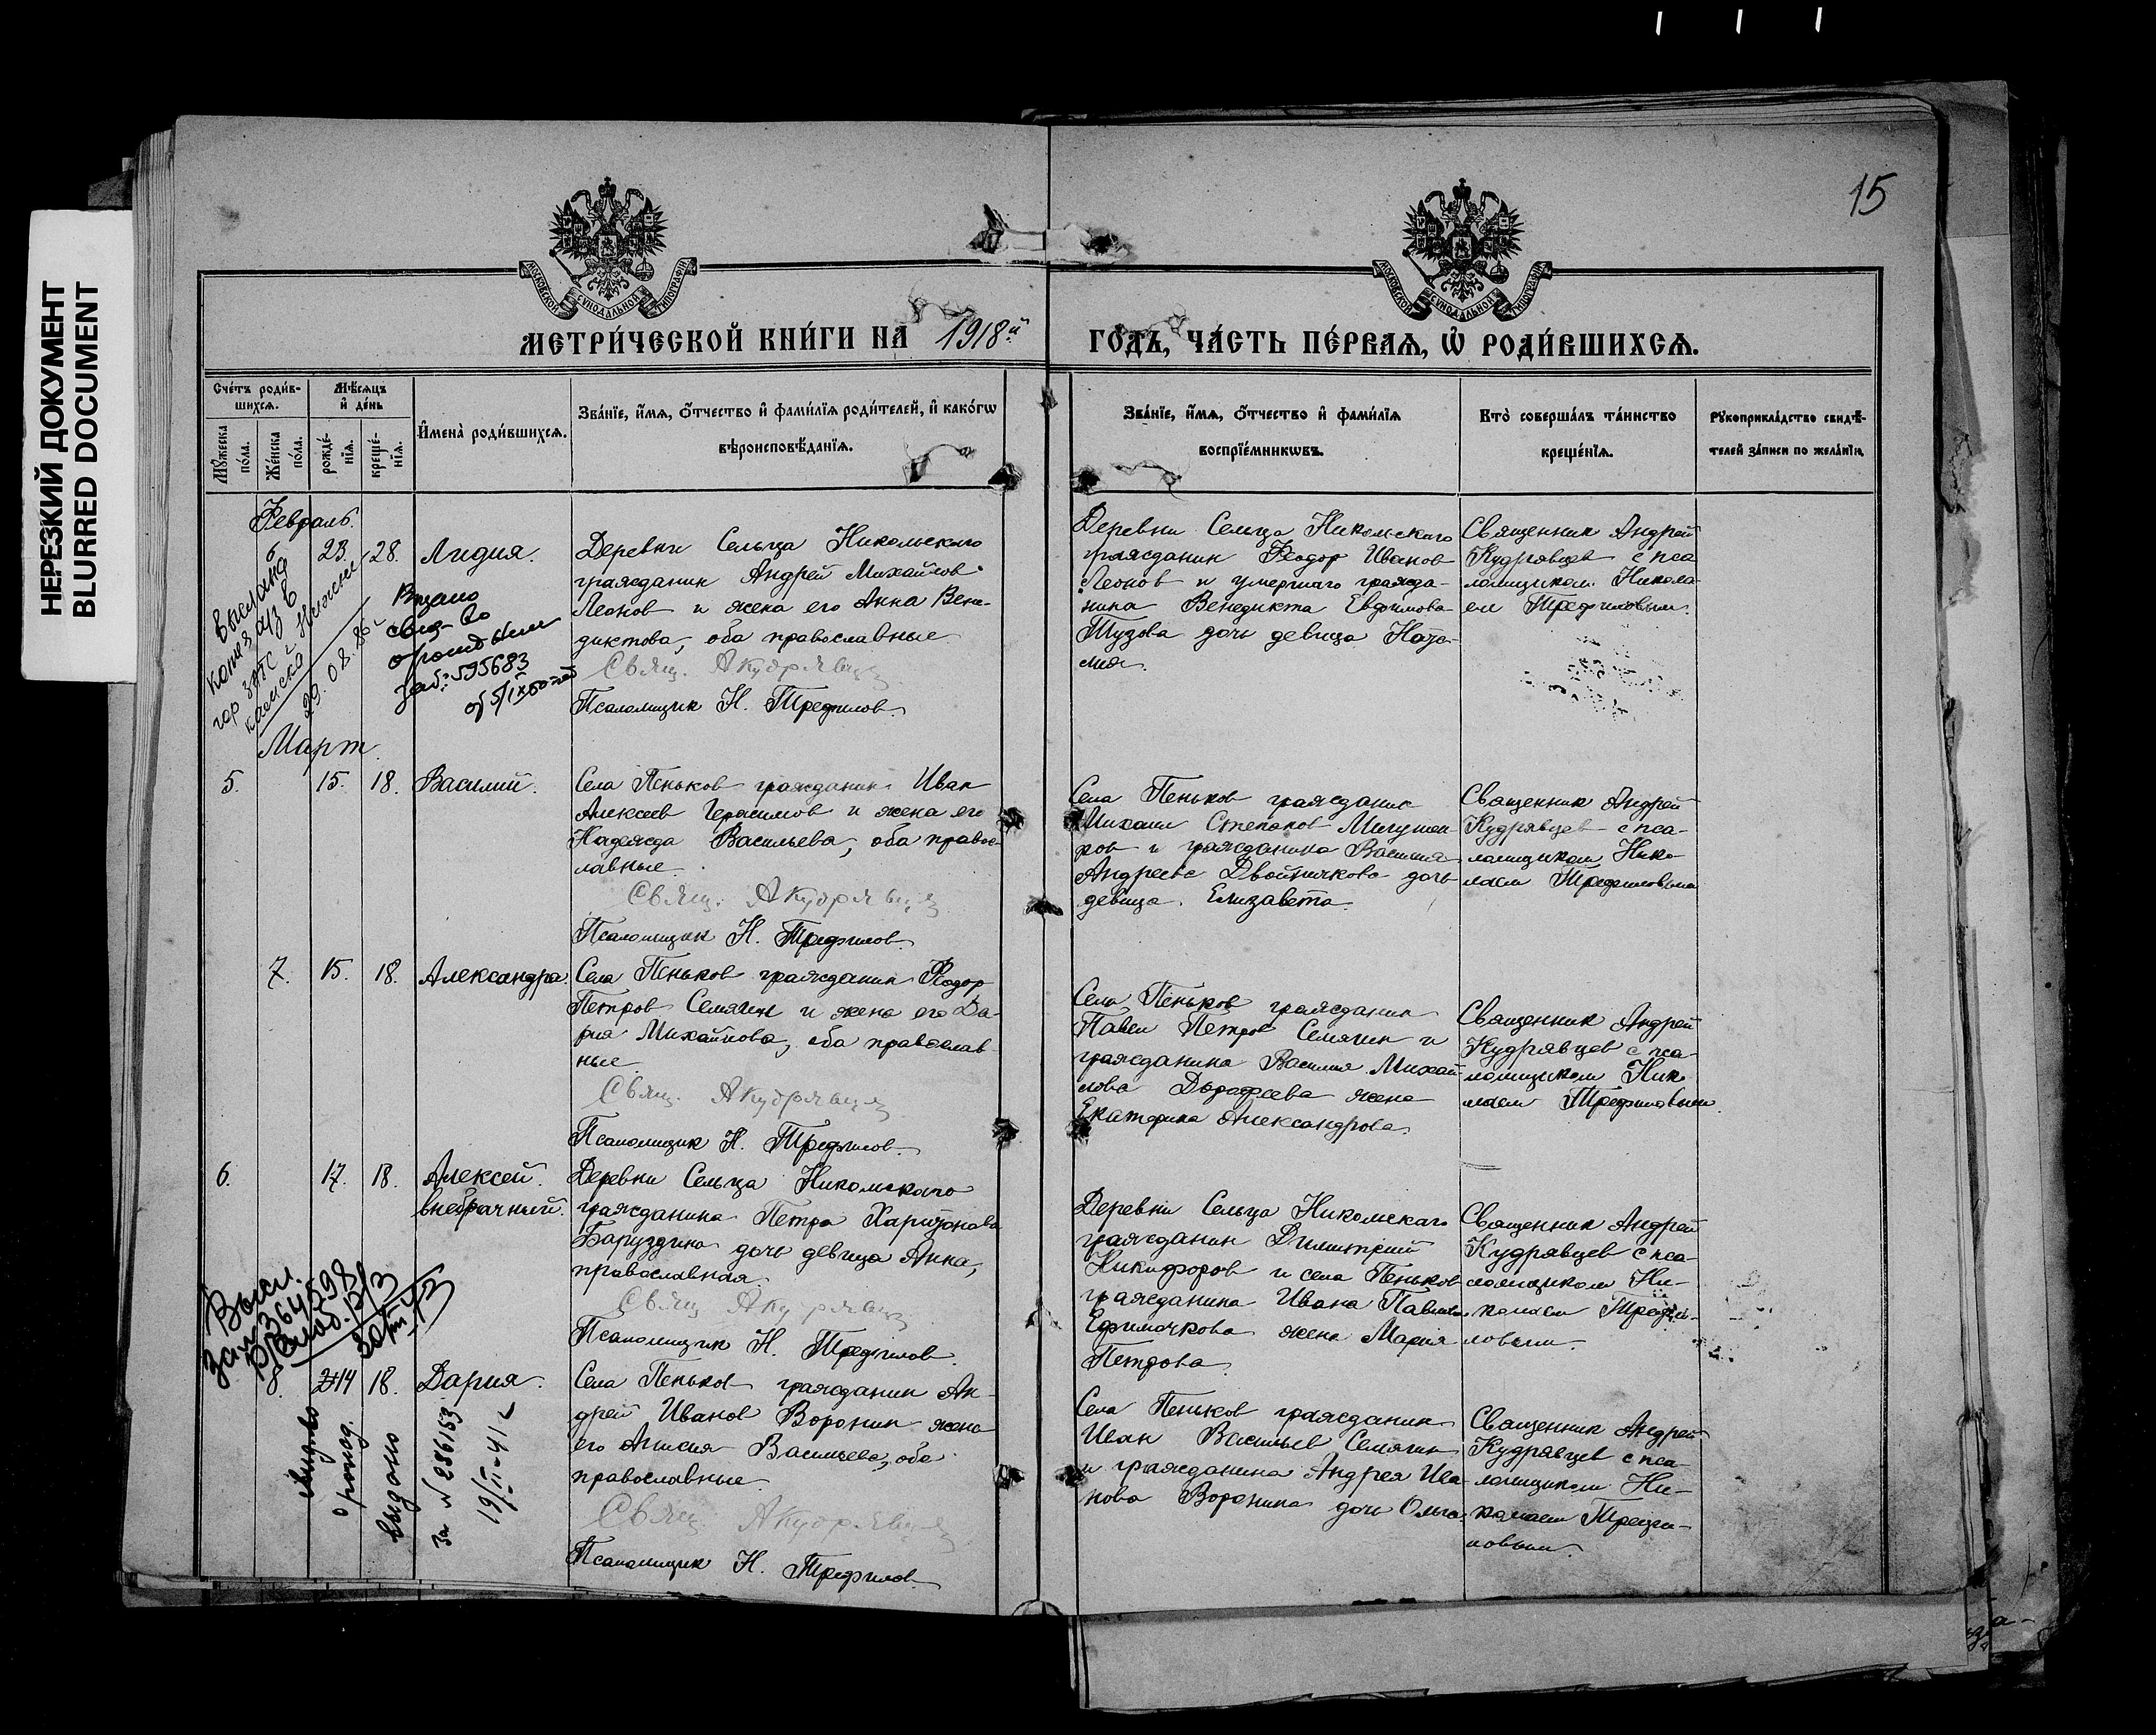 НЕРЕЗКИЙ ДОКУМЕНТ
BLURRED DOCUMENT
15
МОСКОВСКОЙ СѴНОДАЛЬНОЙ ТИПОГРАФІИ
МОСКОВСКОЙ СѴНОДАЛЬНОЙ ТИПОГРАФІИ
МЕТРИ́ЧЕСКОЙ КНИ́ГИ НА 1918й ГО́ДЪ, ЧА́СТЬ ПЕ́РВАѦ, Ѡ҆ РОДИ́ВШИХСѦ.
Сче́тъ роди́в-
шихсѧ.
Мѣ́сѧцъ
и҆ де́нь
Мꙋ́жеска
по́ла.
Же́нска
по́ла.
рожде́-
нїѧ.
креще́-
нїѧ.
И҆мена̀ роди́вшихсѧ.
Зва́нїе, и҆́мѧ, ѻ҆́тчество и҆ фами́лїѧ роди́телей, и҆ како́гѡ
вѣроисповѣ́данїѧ.
Зва́нїе, и҆́мѧ, ѻ҆́тчество и҆ фами́лїѧ
воспрїе́мникѡвъ.
Кто̀ соверша́лъ та́инство
креще́нїѧ.
Рꙋкоприкла́дство свидѣ́-
телей за́писи по жела́нїю.
Февраль.
6 23. 28. Лидия.
Деревни Сельца Никольского
гражданин Андрей Михайлов
Леонов и жена его Анна Вене-
диктова, оба православные
Свящ. АКудрявцев
Псаломщик Н. Трефилов.
Деревни Сельца Никольского
гражданин Феодор Иванов
Леонов и умершаго гражда-
нина Венедикта Евдокимова
Тузова дочь девица Ната-
лия.
Священник Андрей
Кудрявцев с пса
ломщиком Никола
ем Трефиловым.
выслана
копия а/з в
гор ЗАГС
29.08.86г
Выдано
свид-во
о рожд
за №595683
от 5/IX
Март.
5. 15. 18. Василий.
Села Пеньков гражданин Иван
Алексеев Герасимов и жена его
Надежда Васильева, оба правос-
лавные.
Свящ. АКудрявцев
Псаломщик Н. Трефилов.
Села Пеньков гражданин
Михаил Степанов
ков и гражданина Василия
Андреева Двойничкова дочь
девица Елизавета.
Священник Андрей
Кудрявцев с пса-
ломщиком Нико
лаем Трефиловым
7. 15. 18. Александра.
Села Пеньков гражданин Феодор
Петров Семягин и жена его Да-
рия Михайлова, оба православ-
ные.
Свящ. АКудрявцев
Псаломщик Н. Трефилов.
Села Пеньков гражданин
Павел Петров Семягин и
гражданина Василия Михай-
лова Дорофеева жена
Екатерина Александрова.
Священник Андрей
Кудрявцев с пса-
ломщиком Нико
лаем Трефиловым.
6. 17. 18. Алексей.
внебрачный.
Деревни Сельца Никольского
гражданина Петра Харитонова
Баруздина дочь девица Анна,
православная.
Свящ АКудрявцев
Псаломщик Н. Трефилов.
Деревни Сельца Никольскаго
гражданин Димитрий
Никифоров и села Пеньков
гражданина Ивана Павлова
Ефимочкова жена Мария
Петрова.
Священник Андрей
Кудрявцев с пса-
ломщиком Ни-
колаем Трефи-
ловым.
8. 14 18. Дария.
Села Пеньков гражданин Ан-
дрей Иванов Воронин жена
его Анисия Васильева, оба
православные.
Свящ АКудрявцев
Псаломщик Н. Трефилов.
Села Пеньков гражданин
Иван Васильев Семягин
и гражданина Андрея Ива-
нова Воронина дочь Ольга
Священник Андрей
Кудрявцев с пса-
ломщиком Ни-
колаем Трефи-
ловым.
о рожд.
выдано
за №286153
19/II-41г